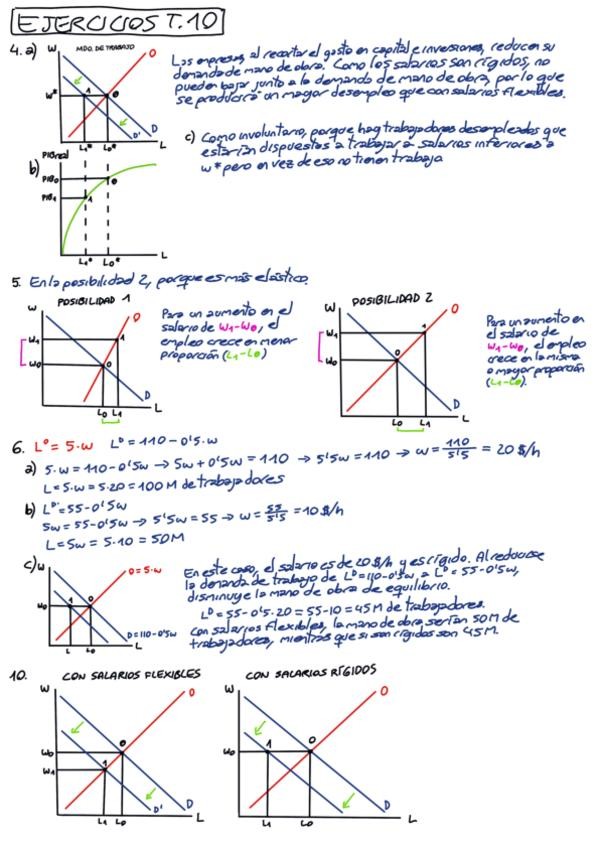 EJERCICIOS T.10
4. a)
W
MDO. DE TRABAJO
O
W*
1
0
D' D
L
L1* L0*
Las empresas, al recortar el gasto en capital e inversiones, reducen su
demanda de mano de obra. Como los salarios son rígidos, no
pueden bajar junto a la demanda de mano de obra, por lo que
se producirá un mayor desempleo que con salarios flexibles.
c) Como involuntario, porque hay trabajadores desempleados que
estarían dispuestos a trabajar a salarios inferiores a
w* pero en vez de eso no tienen trabajo
b)
PIBreal
PIB0
PIB1
0
1
L1* L0*
L
5. En la posibilidad 2, porque es más elástico.
POSIBILIDAD 1
W
O
W1
1
W0
0
D
L0 L1
L
Para un aumento en el
salario de W1-W0, el
empleo crece en menor
proporción (L1-L0)
POSIBILIDAD 2
W
O
W1
1
W0
0
D
L0 L1
L
Para un aumento en
el salario de
W1-W0, el empleo
crece en la misma
o mayor proporción
(L1-L0).
6. L° = 5·w L^D = 110 - 0'5·w
a) 5·w = 110 - 0'5w → 5w + 0'5w = 110 → 5'5w = 110 → w = 110/5'5 = 20 $/h
L = 5·w = 5·20 = 100 M de trabajadores
b) L^D' = 55 - 0'5w
5w = 55 - 0'5w → 5'5w = 55 → w = 55/5'5 = 10 $/h
L = 5w = 5·10 = 50M
c)
W
O = 5·w
W0
1 0
D = 110 - 0'5w
L L0
L
En este caso, el salario es de 20 $/h y es rígido. Al reducirse
la demanda de trabajo de L^D = 110 - 0'5w, a L^D' = 55 - 0'5w,
disminuye la mano de obra de equilibrio.
L^D = 55 - 0'5·20 = 55 - 10 = 45 M de trabajadores.
Con salarios flexibles, la mano de obra serían 50 M de
trabajadores, mientras que si son rígidos son 45 M.
10.
CON SALARIOS FLEXIBLES
W
O
W0
0
W1
1
D' D
L1 L0
L
CON SALARIOS RÍGIDOS
W
O
W0
1 0
D
L1 L0
L